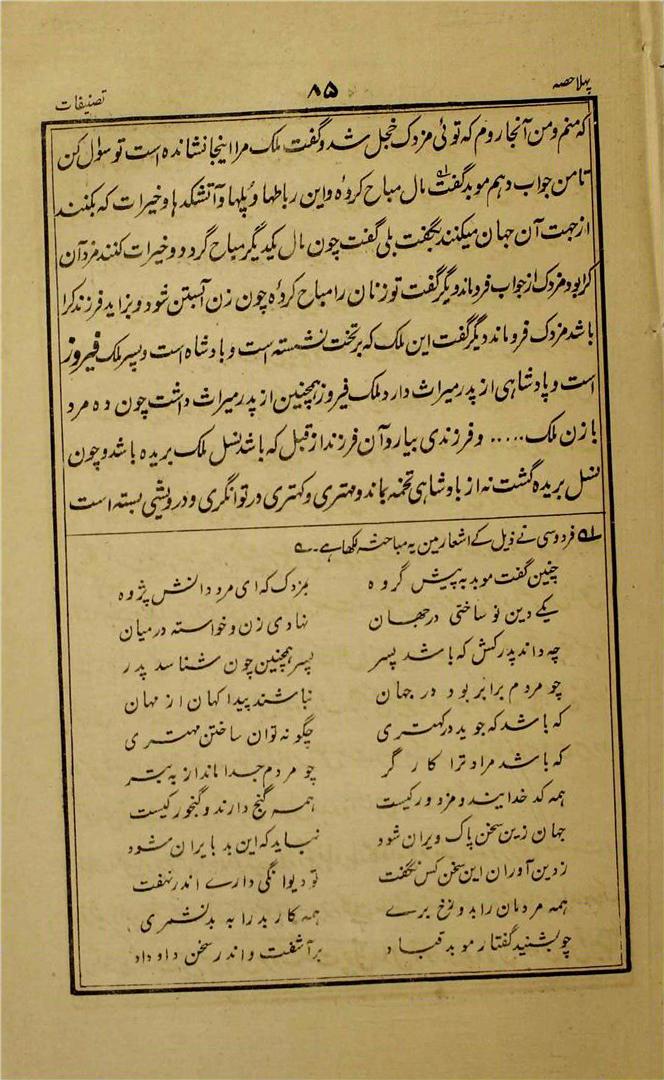 پہلا حصہ
۸۵
تصنیفات
که منم ومن آنجا روم که توئی مزدک خجل شد وگفت ملک مرا اینجا نشانده است تو سوال کن
تا من جواب دهم موبد گفت مال مباح کرده واین رباطها وپلها وآتشکدها وخیرات که بکنند
از جهت آن جهان میکنند بگفت بلی گفت چون مال یکدیگر مباح گردد وخیرات کنند مزد آن
کرا بود مزدک از جواب فروماند ودیگر گفت تو زنان را مباح کردهٔ چون زن آبستن شود وبزاید فرزند کرا
باشد مزدک فروماند دیگر گفت این ملک که بر تخت نشسته است وبادشاه است وپسر ملک فیروز
است وپادشاهی از پدر میراث دارد ملک فیروز همچنین از پدر میراث داشت چون ده مرد
با زن ملک ..... وفرزندی بیارد آن فرزند از قبل که باشد نسل ملک بریده باشد وچون
نسل بریده گشت نه از بادشاهی تخمه بماند ومهتری وکهتری در توانگری ودرویشی بسته است
لہ فردوسی نے ذیل کے اشعار مین یہ مباحثہ لکھا ہے۔
چنین گفت موبد به پیش گروه
بمزدک که ای مرد دانش پژوه
یکے دین نو ساختی در جهان
نهادی زن وخواسته درمیان
چه داند پدر کش که باشد پسر
پسر همچنین چون شناسد پدر
چو مردم برابر بود در جهان
نباشند پیدا کهان از مهان
که باشد که جوید در کهتری
چگونه توان ساختن مهتری
که باشد مرا و ترا کارگر
چو مردم جدا ماند از به بتر
همه کدخدایند ومزدور کیست
همه گنج دارند وگنجور کیست
جهان زین سخن پاک ویران شود
نباید که این بد بایران شود
ز دین آوران این سخن کس نگفت
تو دیوانگی دارے اندر نهفت
همه مردمان را بدوزخ برے
همه کار بد را به بد نشمری
چو بشنید گفتار موبد قباد
برآشفت واندر سخن داد داد